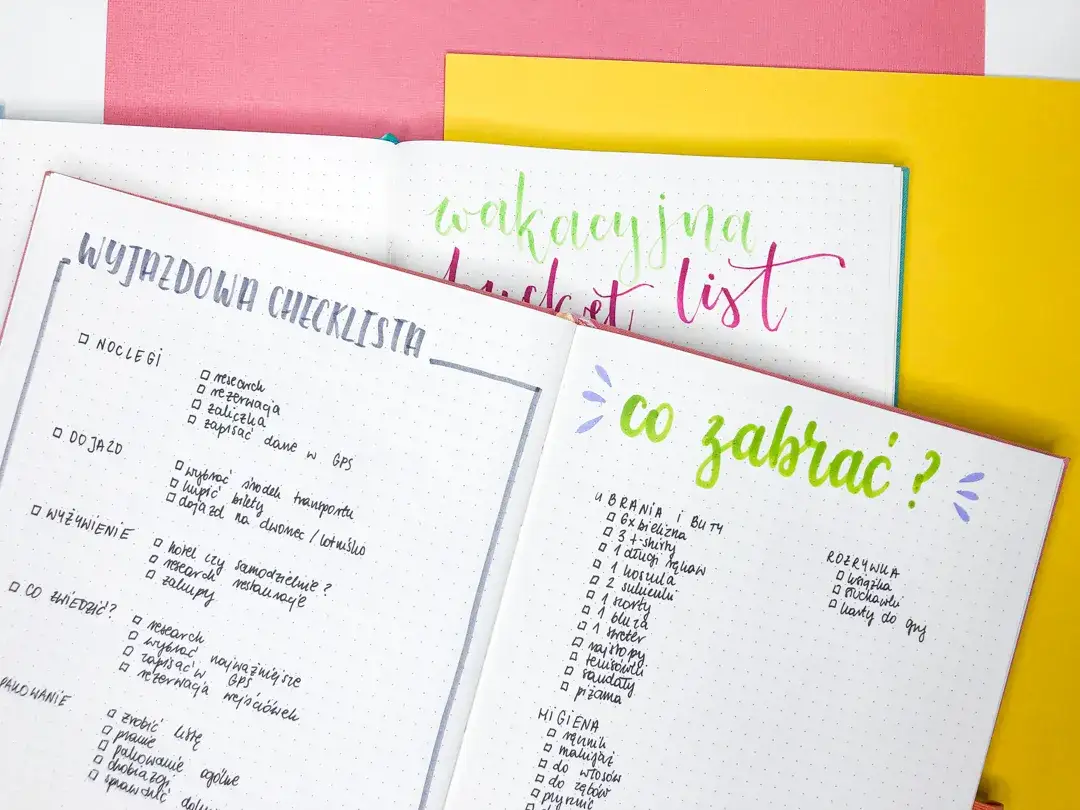 wakacyjna
bucket list
WYJAZDOWA CHECKLISTA
NOCLEGI
research
rezerwacja
zaliczka
zapisać dane w GPS
DOJAZD
wybrać środek transportu
kupić bilety
dojazd na dworzec / lotnisko
WYŻYWIENIE
hotel czy samodzielnie?
research restauracje
zakupy
CO ZWIEDZIĆ?
research
wybrać najważniejsze
zapisać w GPS
rezerwacja wejściówek
PAKOWANIE
zrobić listę
pranie
pakowanie ogólne
drobiazgi
sprawdzić
co zabrać?
UBRANIA I BUTY
6x bielizna
3 t-shirty
1 długi rękaw
1 koszula
2 sukienki
1 szorty
1 bluza
1 sweter
rajstopy
tenisówki
sandały
piżama
HIGIENA
ręcznik
makijaż
do włosów
do zębów
prysznic
ROZRYWKA
książka
słuchawki
karty do gry